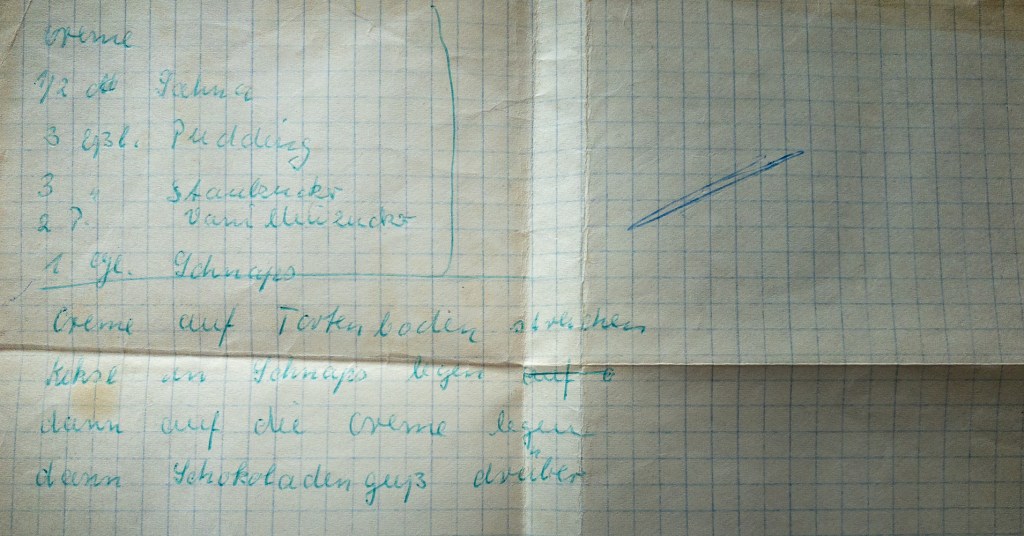 Creme
1/2 l Sahne
3 Eßl. Pudding
3 " Staubzucker
2 P. Vanillinzucker
1 Eßl. Schnaps
Creme auf Tortenboden streichen
Kekse in Schnaps legen auf
dann auf die Creme legen
dann Schokoladenguß drüber